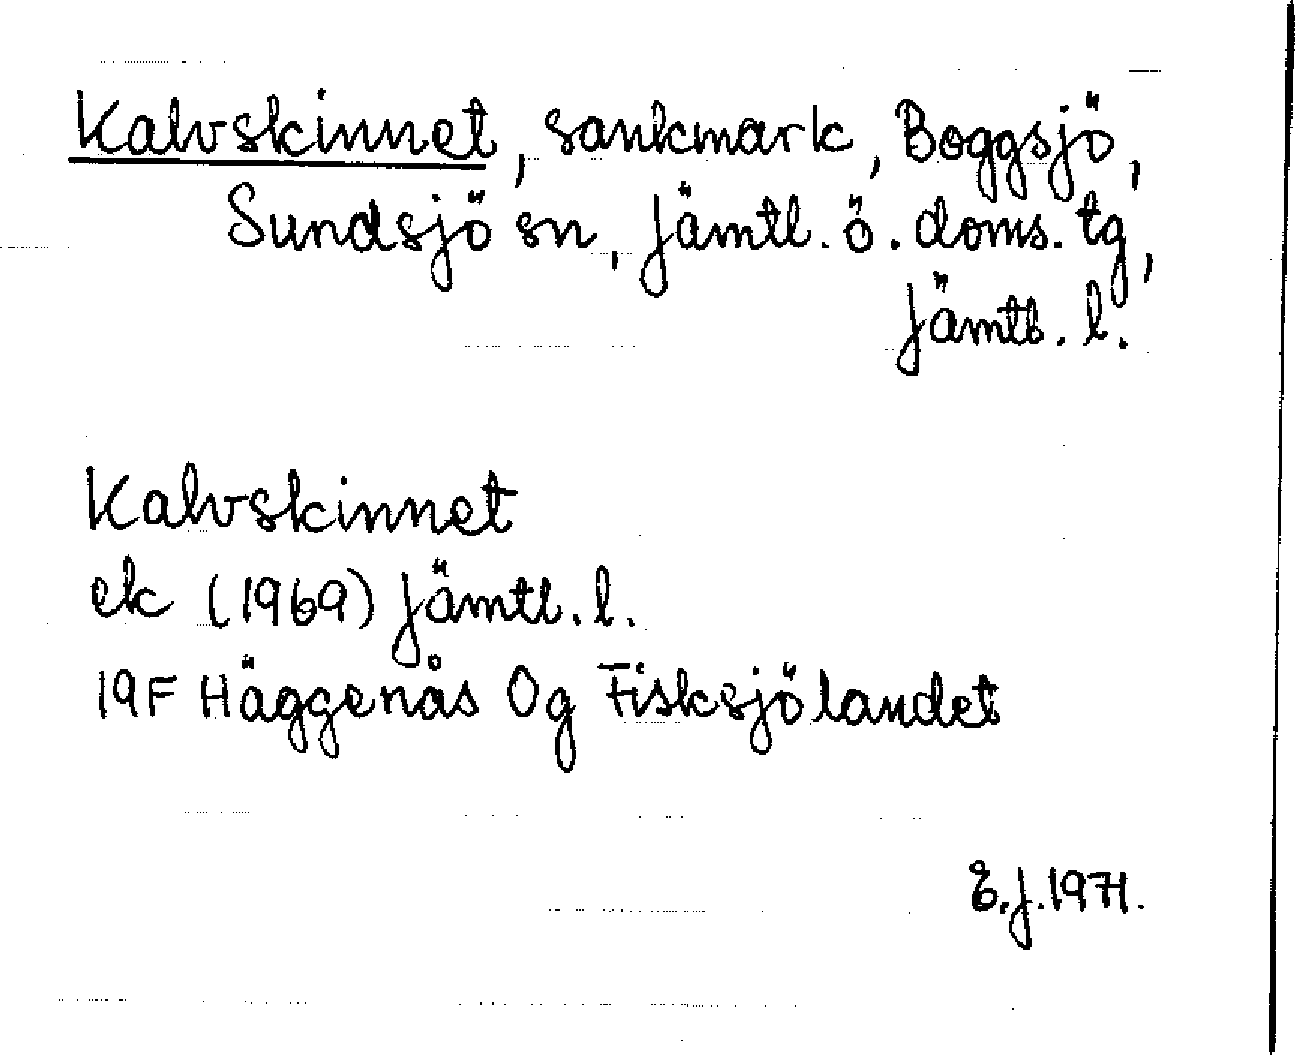 Kalvskinnet, sankmark, Boggsjö,
Sundsjö sn, Jämtl. ö. doms. tg,
Jämtl. l.
Kalvskinnet
ek (1969) Jämtl. l.
19F Häggenås Og Fisksjölandet
E.J. 1971.